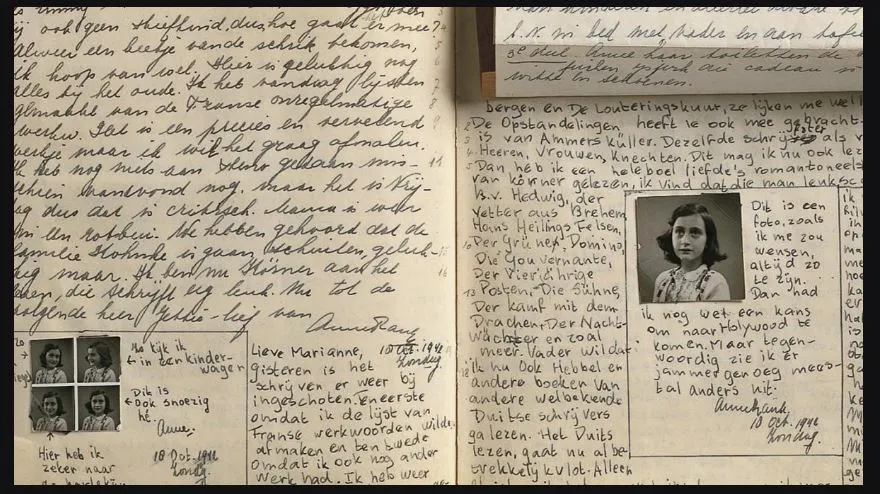 ij ook geen stiefkind, dus hoe gaat er mee?
Alweer een beetje van de schrik bekomen,
ik hoop van wel. Hier is gelukkig nog
alles bij het oude. Ik heb vandaag lijsten
gemaakt van de Franse onregelmatige
werkw. Het is een precies en vervelend
werkje maar ik wil het graag afmaken.
Ik heb nog niets aan Steno gedaan mis-
schien vanavond nog, maar het is Vrij-
dag dus dat is critisch. Mama is weer
in een rotbui. We hebben gehoord dat de
familie
is gaan schuilen, geluk-
kig maar. Ik ben nu Körner aan het
lezen, die schrijft erg leuk. Nu tot de
volgende keer Jettie-lief van
Anne Frank
Zo kijk ik
in een kinder-
wagen
Dit is
ook snoezig
hè.
Anne.
18 Oct. 1942
Zondag.
Hier heb ik
zeker naar
Lieve Marianne,
18 Oct. 1942
Zondag.
gisteren is het
schrijven er weer bij
ingeschoten. Eneerste
omdat ik de lijst van
Franse werkwoorden wilde
afmaken en ten twede
omdat ik ook nog ander
werk had. Ik heb weer
b.v. in bed met vader en aan tafel
3e deel Anne haar
bergen en De Louteringskuur, ze lijken me wel l
De Opstandelingen heeft ie ook mee gebracht.
is van Ammers küller. Dezelfde schrijfster als v
Heeren, Vrouwen, Knechten. Dit mag ik nu ook lez
Dan heb ik een heleboel liefde's romantoneels
van körner gelezen, ik vind dat die man leuk sc
B.v. Hedwig, der
Vetter aus Bremen
Hans Heilings Felsen,
Der Grüne Domino,
Die Gouvernante,
Der Vierjöhrige
Posten, Die Sühne,
Der kampf mit dem
Drachen, Der Nacht-
wächter en zoal
meer. Vader wil dat
ik nu ook Hebbel en
andere boeken van
andere welbekende
Duitse schrijvers
ga lezen. Het Duits
lezen, gaat nu al be-
trekkelijk vlot. Alleen
Dit is een
foto, zoals
ik me zou
wensen,
altijd zo
te zijn.
Dan had
ik nog wel een kans
om naar Holywood te
komen. Maar tegen-
woordig zie ik er
jammer genoeg mees-
tal anders uit.
Anne Frank.
18 Oct. 1942
Zondag.